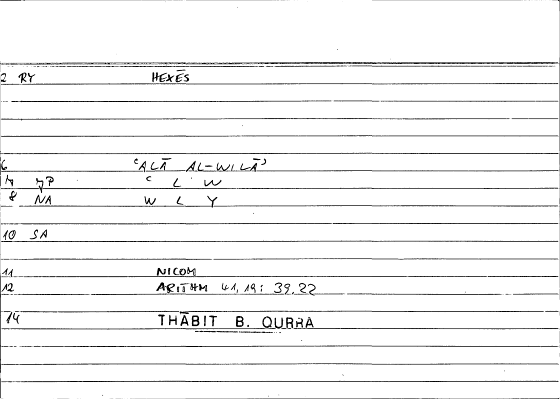 2 RY HEXĒS
6 ʿALĀ AL-WILĀʾ
ʿ L W
8 NA W L Y
10 SA
11 NICOM
12 ARITHM 41,19: 39.22
14 THĀBIT B. QURRA